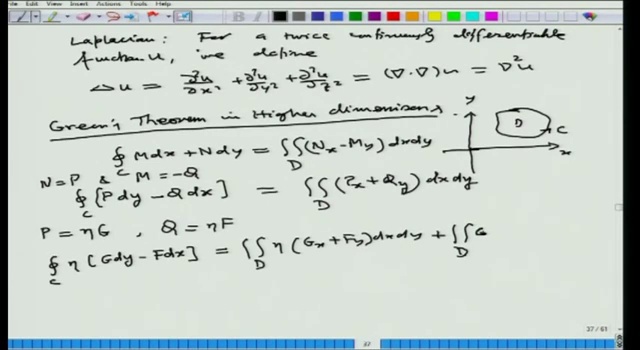 File Edit View Insert Actions Tools Help
Laplacian : For a twice continuously differentiable
function u, we define
Δu = ∂²u/∂x² + ∂²u/∂y² + ∂²u/∂z² = (∇·∇)u = ∇²u
Green's Theorem in Higher dimensions
y
D
C
x
∮_C Mdx + Ndy = ∬_D (Nx - My) dxdy
N = P & M = -Q
∮_C [Pdy - Qdx] = ∬_D (Px + Qy) dxdy
P = ηG , Q = ηF
∮_C η [Gdy - Fdx] = ∬_D η (Gx + Fy) dxdy + ∬_D G
37 / 61
37